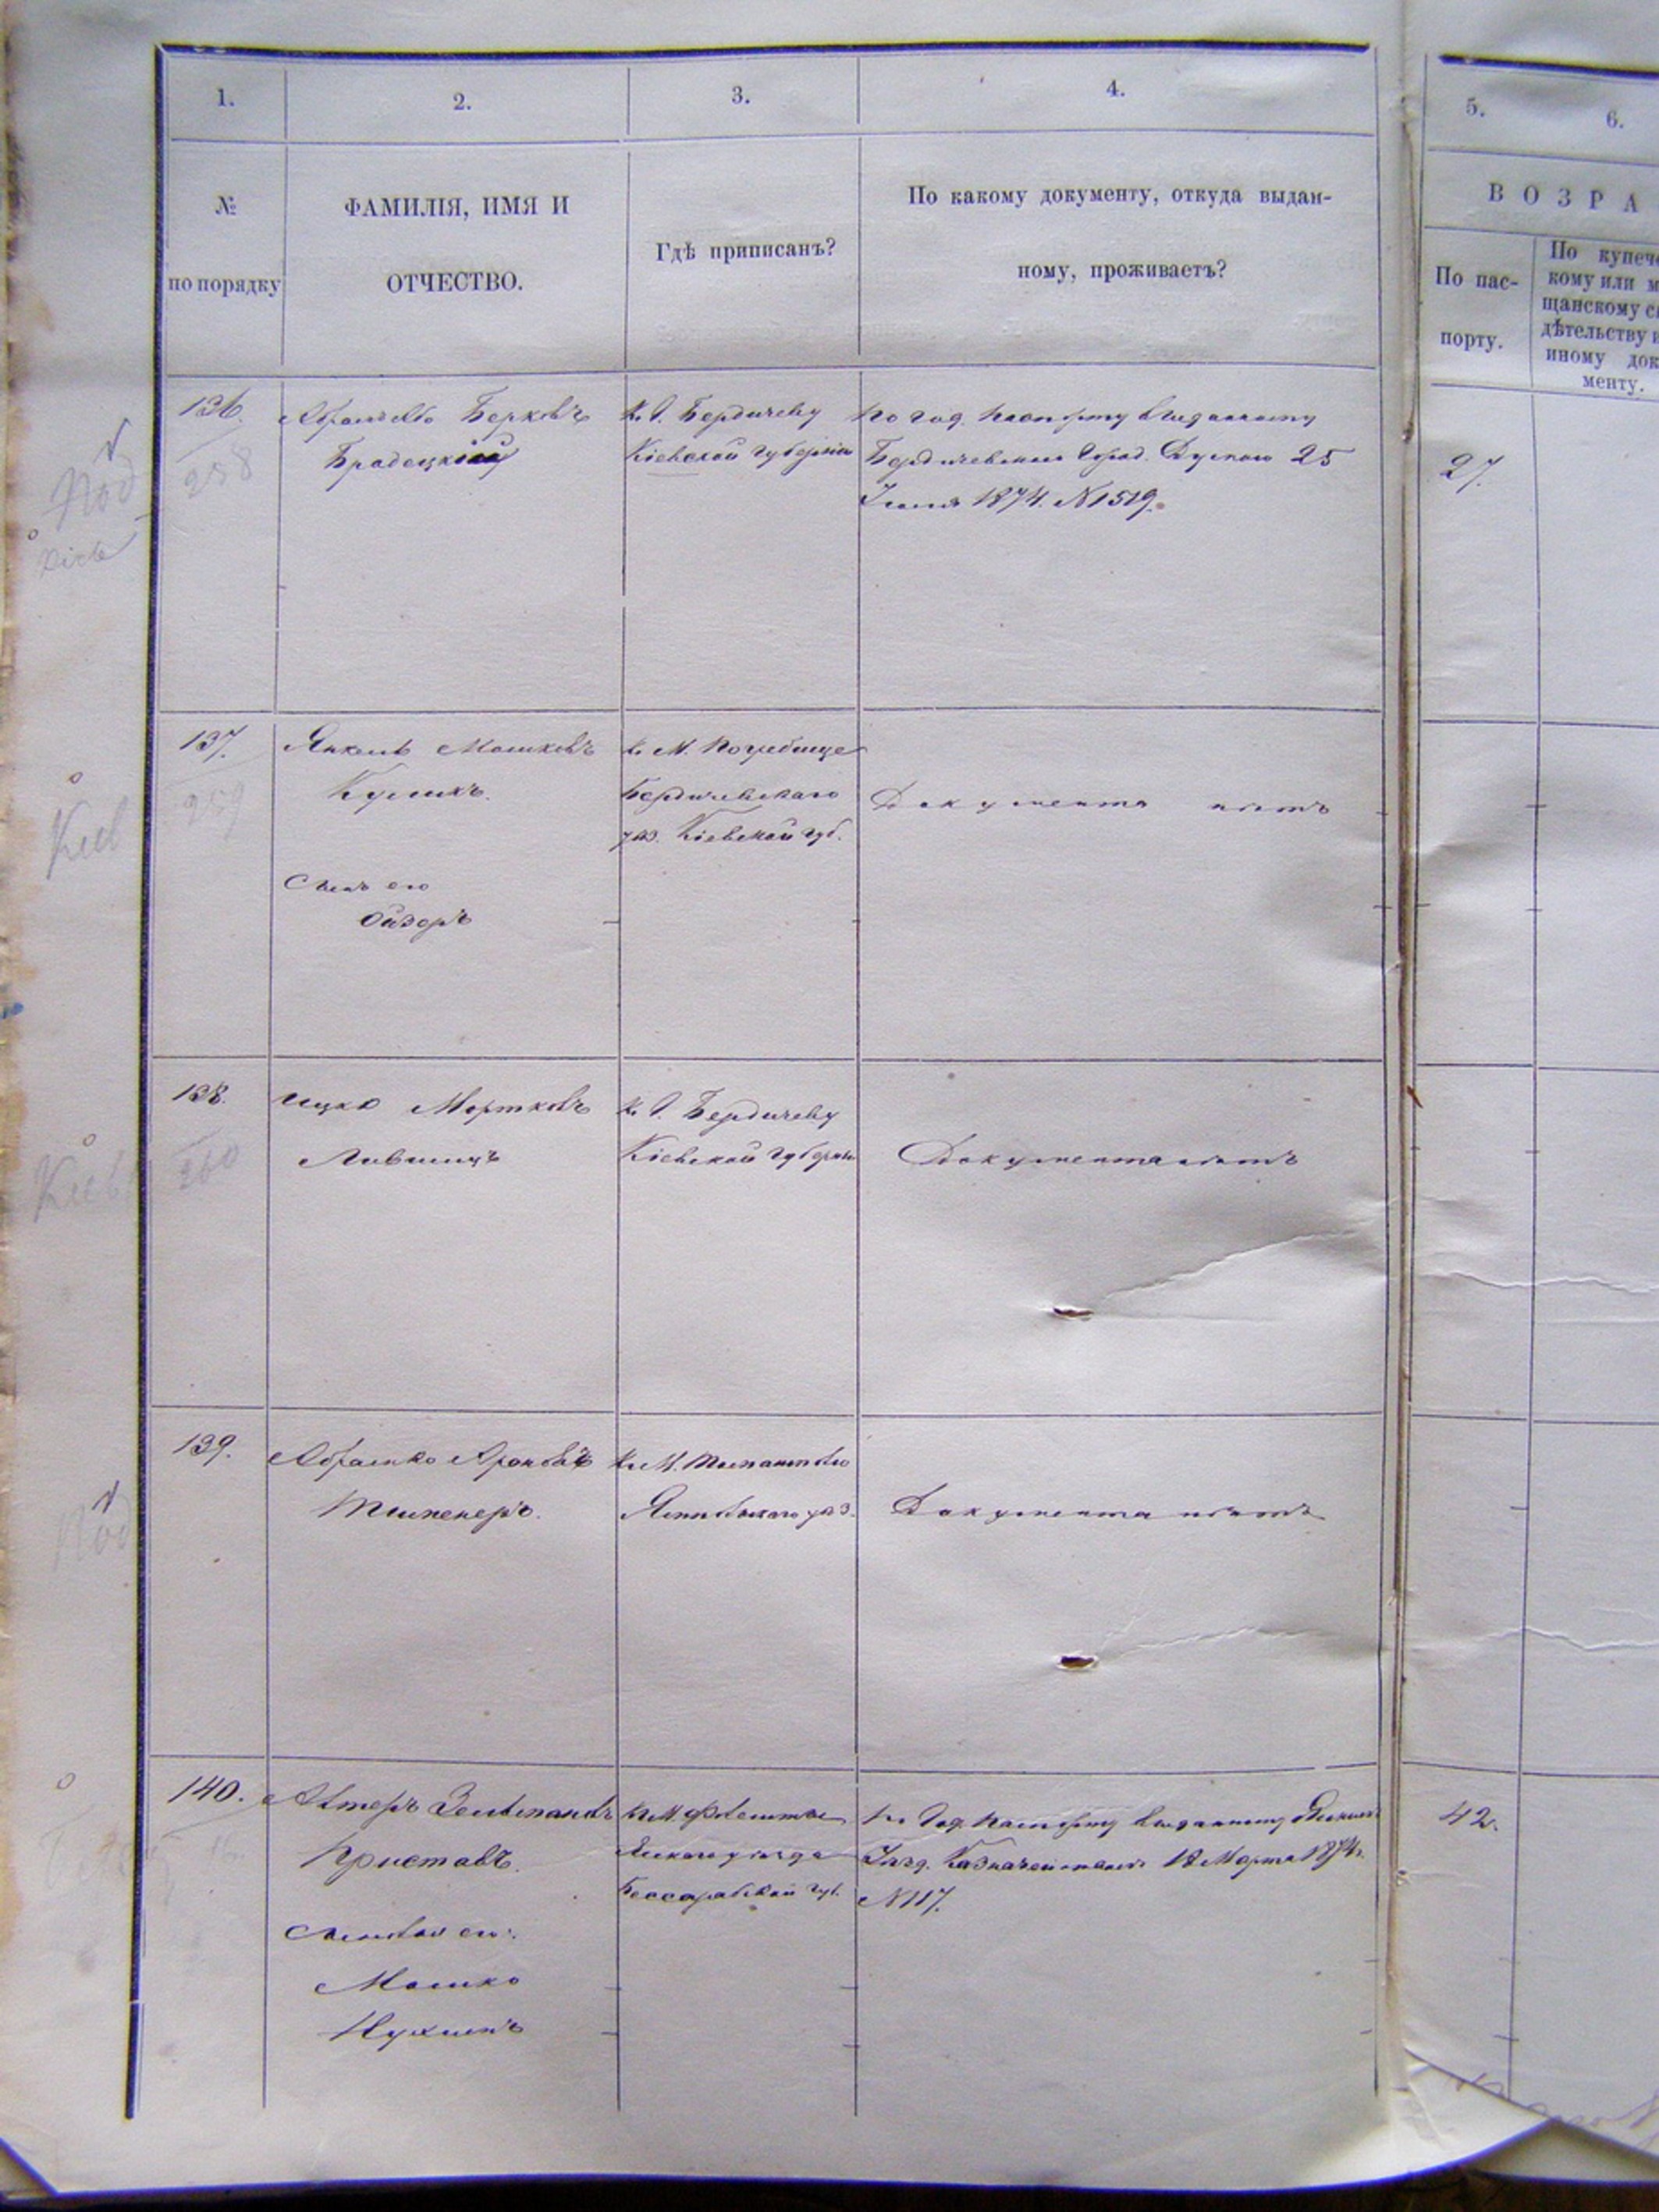 1.
2.
3.
4.
5.
6.
№
по порядку
ФАМИЛІЯ, ИМЯ И
ОТЧЕСТВО.
Гдѣ приписанъ?
По какому документу, откуда выдан-
ному, проживаетъ?
ВОЗРА
По пас-
порту.
По купече
кому или м
щанскому с
дѣтельству и
иному док
менту.
136.
258
Берковъ
Брадецкій
Къ Г. Бердичеву
Кіевской губерніи
По год. паспорту выданному
Бердичевскою Город. Думою 25
1874. №1519.
27.
Под
137.
259
Янкель Мошковъ
Куликъ.
Сынъ его
Ойзеръ
Къ М. Погребище
Бердичевскаго
уѣз. Кіевской губ.
Документа нѣтъ
Кіев
138.
260
Ицко Мортковъ
Лившицъ
Къ Г. Бердичеву
Кіевской губерніи
Документа нѣтъ
Кіевъ
139.
Абрамко Ароновъ
Къ М.
уѣз.
Документа нѣтъ
Под
140.
Приставъ.
Сыновья его:
Мошко
Нухимъ
Къ М. Фалешты
Ясскаго уѣзда
Бессарабской губ.
По Год. паспорту выданному
Уѣзд. Казначействомъ 18 Марта 1874 г.
№117.
42.